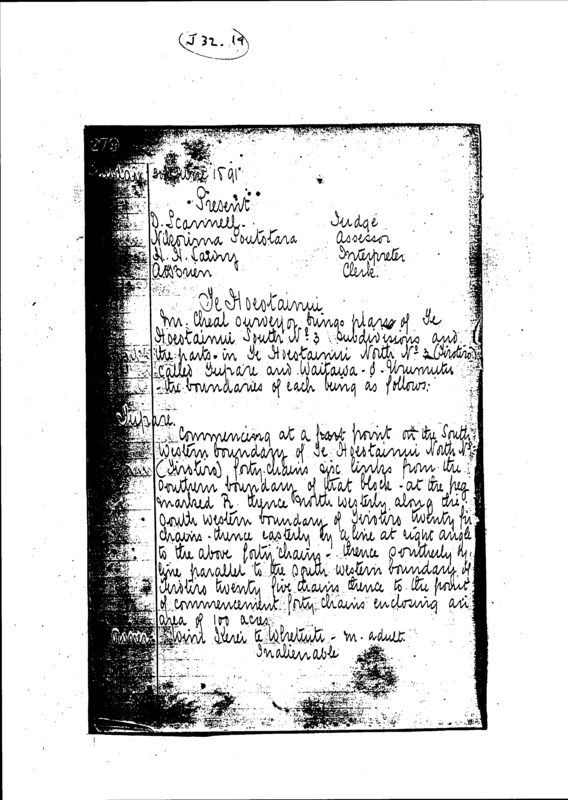 J 32. 19
279
1891
Present
D. Scannell. Judge
Nikorima Poutotara Assessor
H. H. Interpreter
Clerk.
Te Hoeotainui
Mr. Cheal surveyor brings plans of Te
Hoeotainui South No 3 Subdivisions and
the parts in Te Hoeotainui North No
called Tupare and Waitawa - o -
- the boundaries of each being as follows:
Tupare.
Commencing at a point on the South
Western boundary of Te Hoeotainui North No
forty chains six links from the
southern boundary of that block - at the peg
marked thence north westerly along the
south western boundary of twenty fi
chains - thence easterly by a line at right angle
to the above forty chains - thence southerly by
line parallel to the south western boundary of
twenty five chains thence to the point
of commencement forty chains enclosing an
area of 100 acres
Wini Kerei te Whetuiti - m. adult.
Inalienable